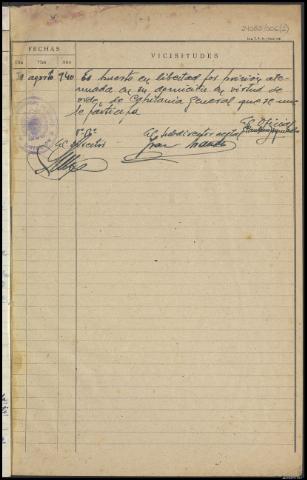 24080/006(2)
FECHAS
VICISITUDES
Día Mes Año
agosto 940 Es puesto en libertad por prisión ate-
nuada en su domicilio en virtud de
orden de Capitania General que se me
participa
El Oficial
Vº Bº El Subdirector
El Director